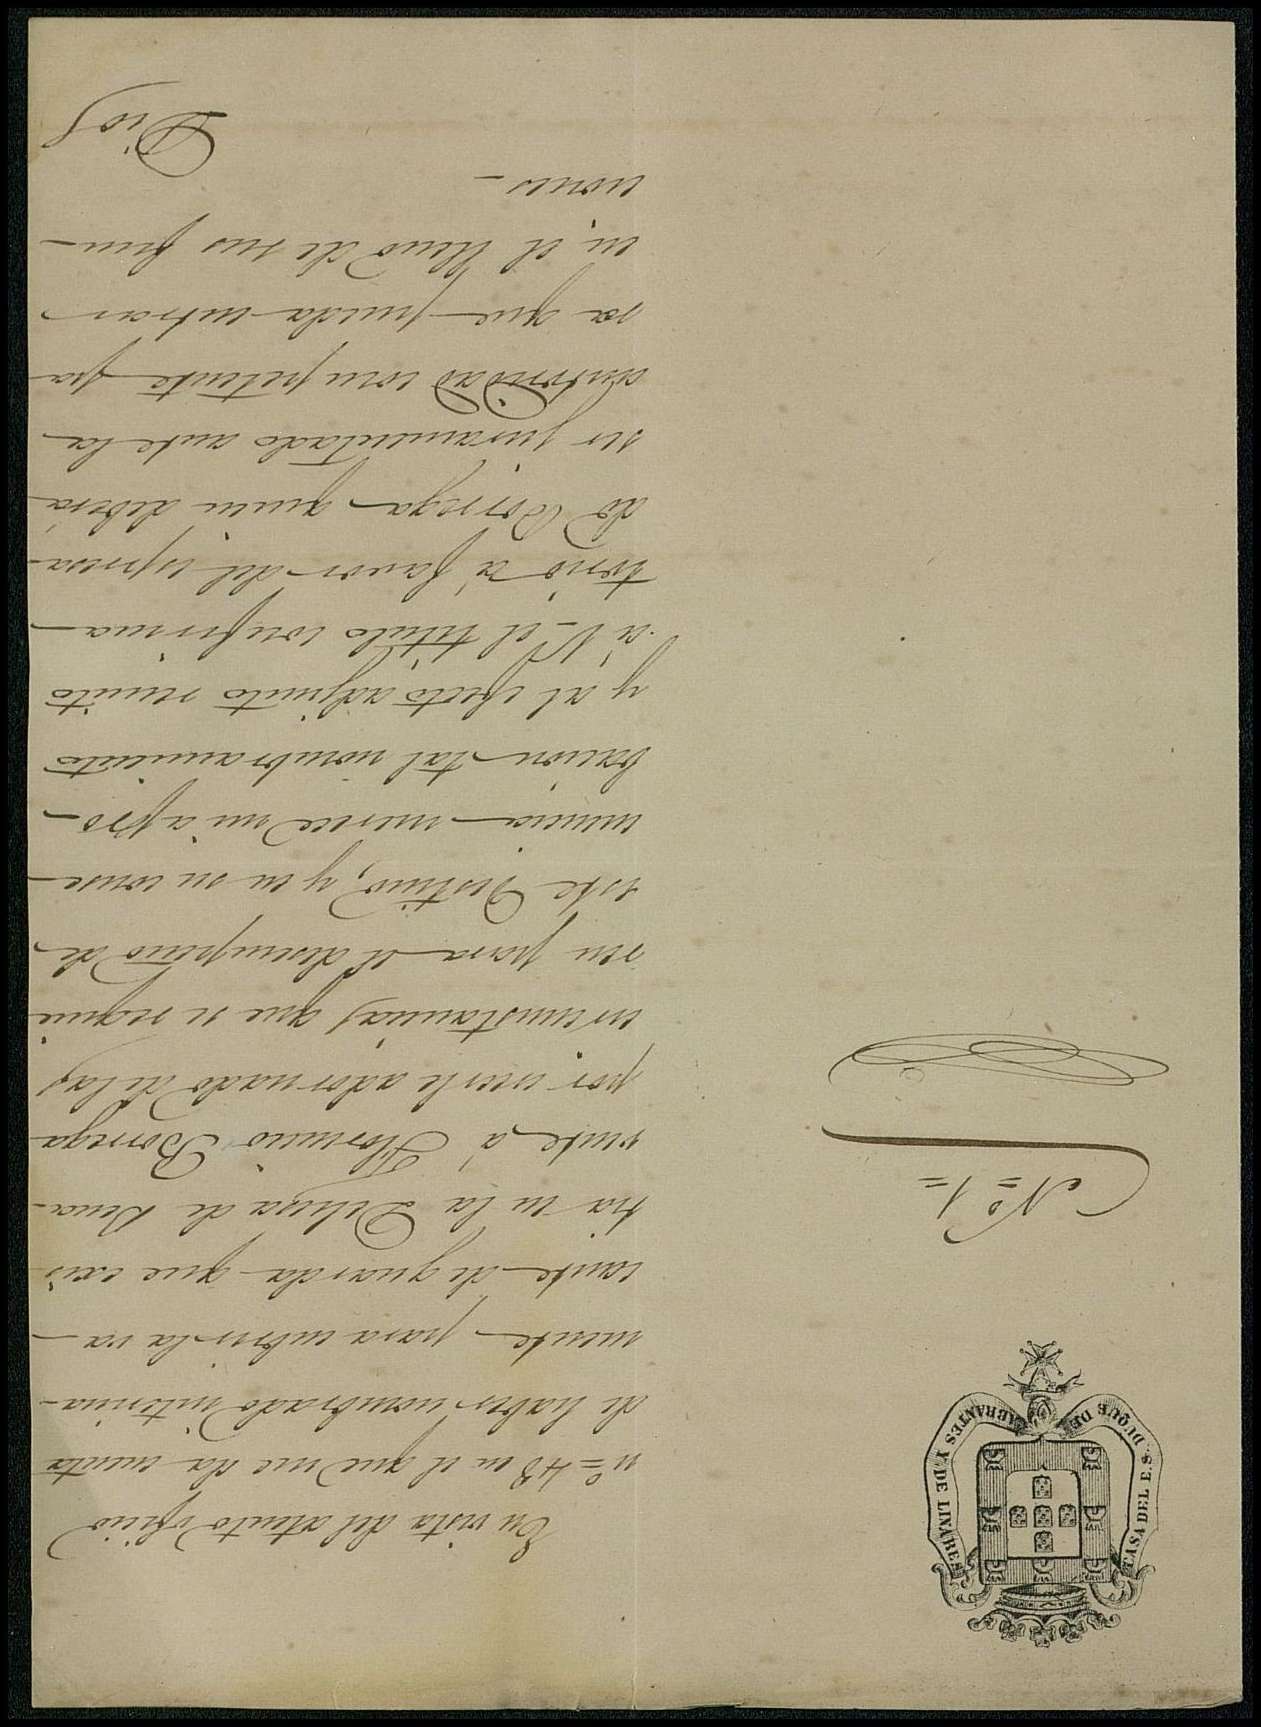 CASA DEL E.S. DUQUE DE ABRANTES Y DE LINARES
Nº = 1 =
En vista del atento oficio
nº = 48 en el que me da cuenta
de haber nombrado interina-
mente para cubrir la va-
cante de guarda que exis-
tia en la Dehesa de Pena-
vente, á Florencio Borrega
por creerle adornado de las
circunstancias que se requie
ren para el desempeño de
este destino, y en su conse-
cuencia merece mi apro-
bacion tal nombramiento
y al efecto adjunto remito
á V. el titulo confirma-
torio á favor del espresa-
do Borrega quien deberá
ser juramentado ante la
autoridad competente pa
ra que pueda entrar
en el lleno de sus fun-
ciones -
Dios